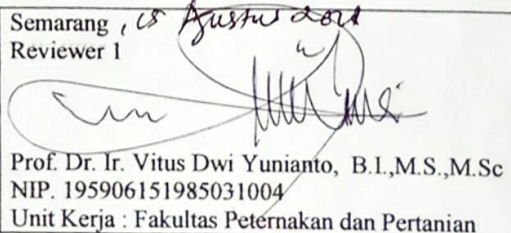 Semarang, 15 Agustus
Reviewer 1
Prof. Dr. Ir. Vitus Dwi Yunianto, B.I.,M.S.,M.Sc
NIP. 195906151985031004
Unit Kerja : Fakultas Peternakan dan Pertanian